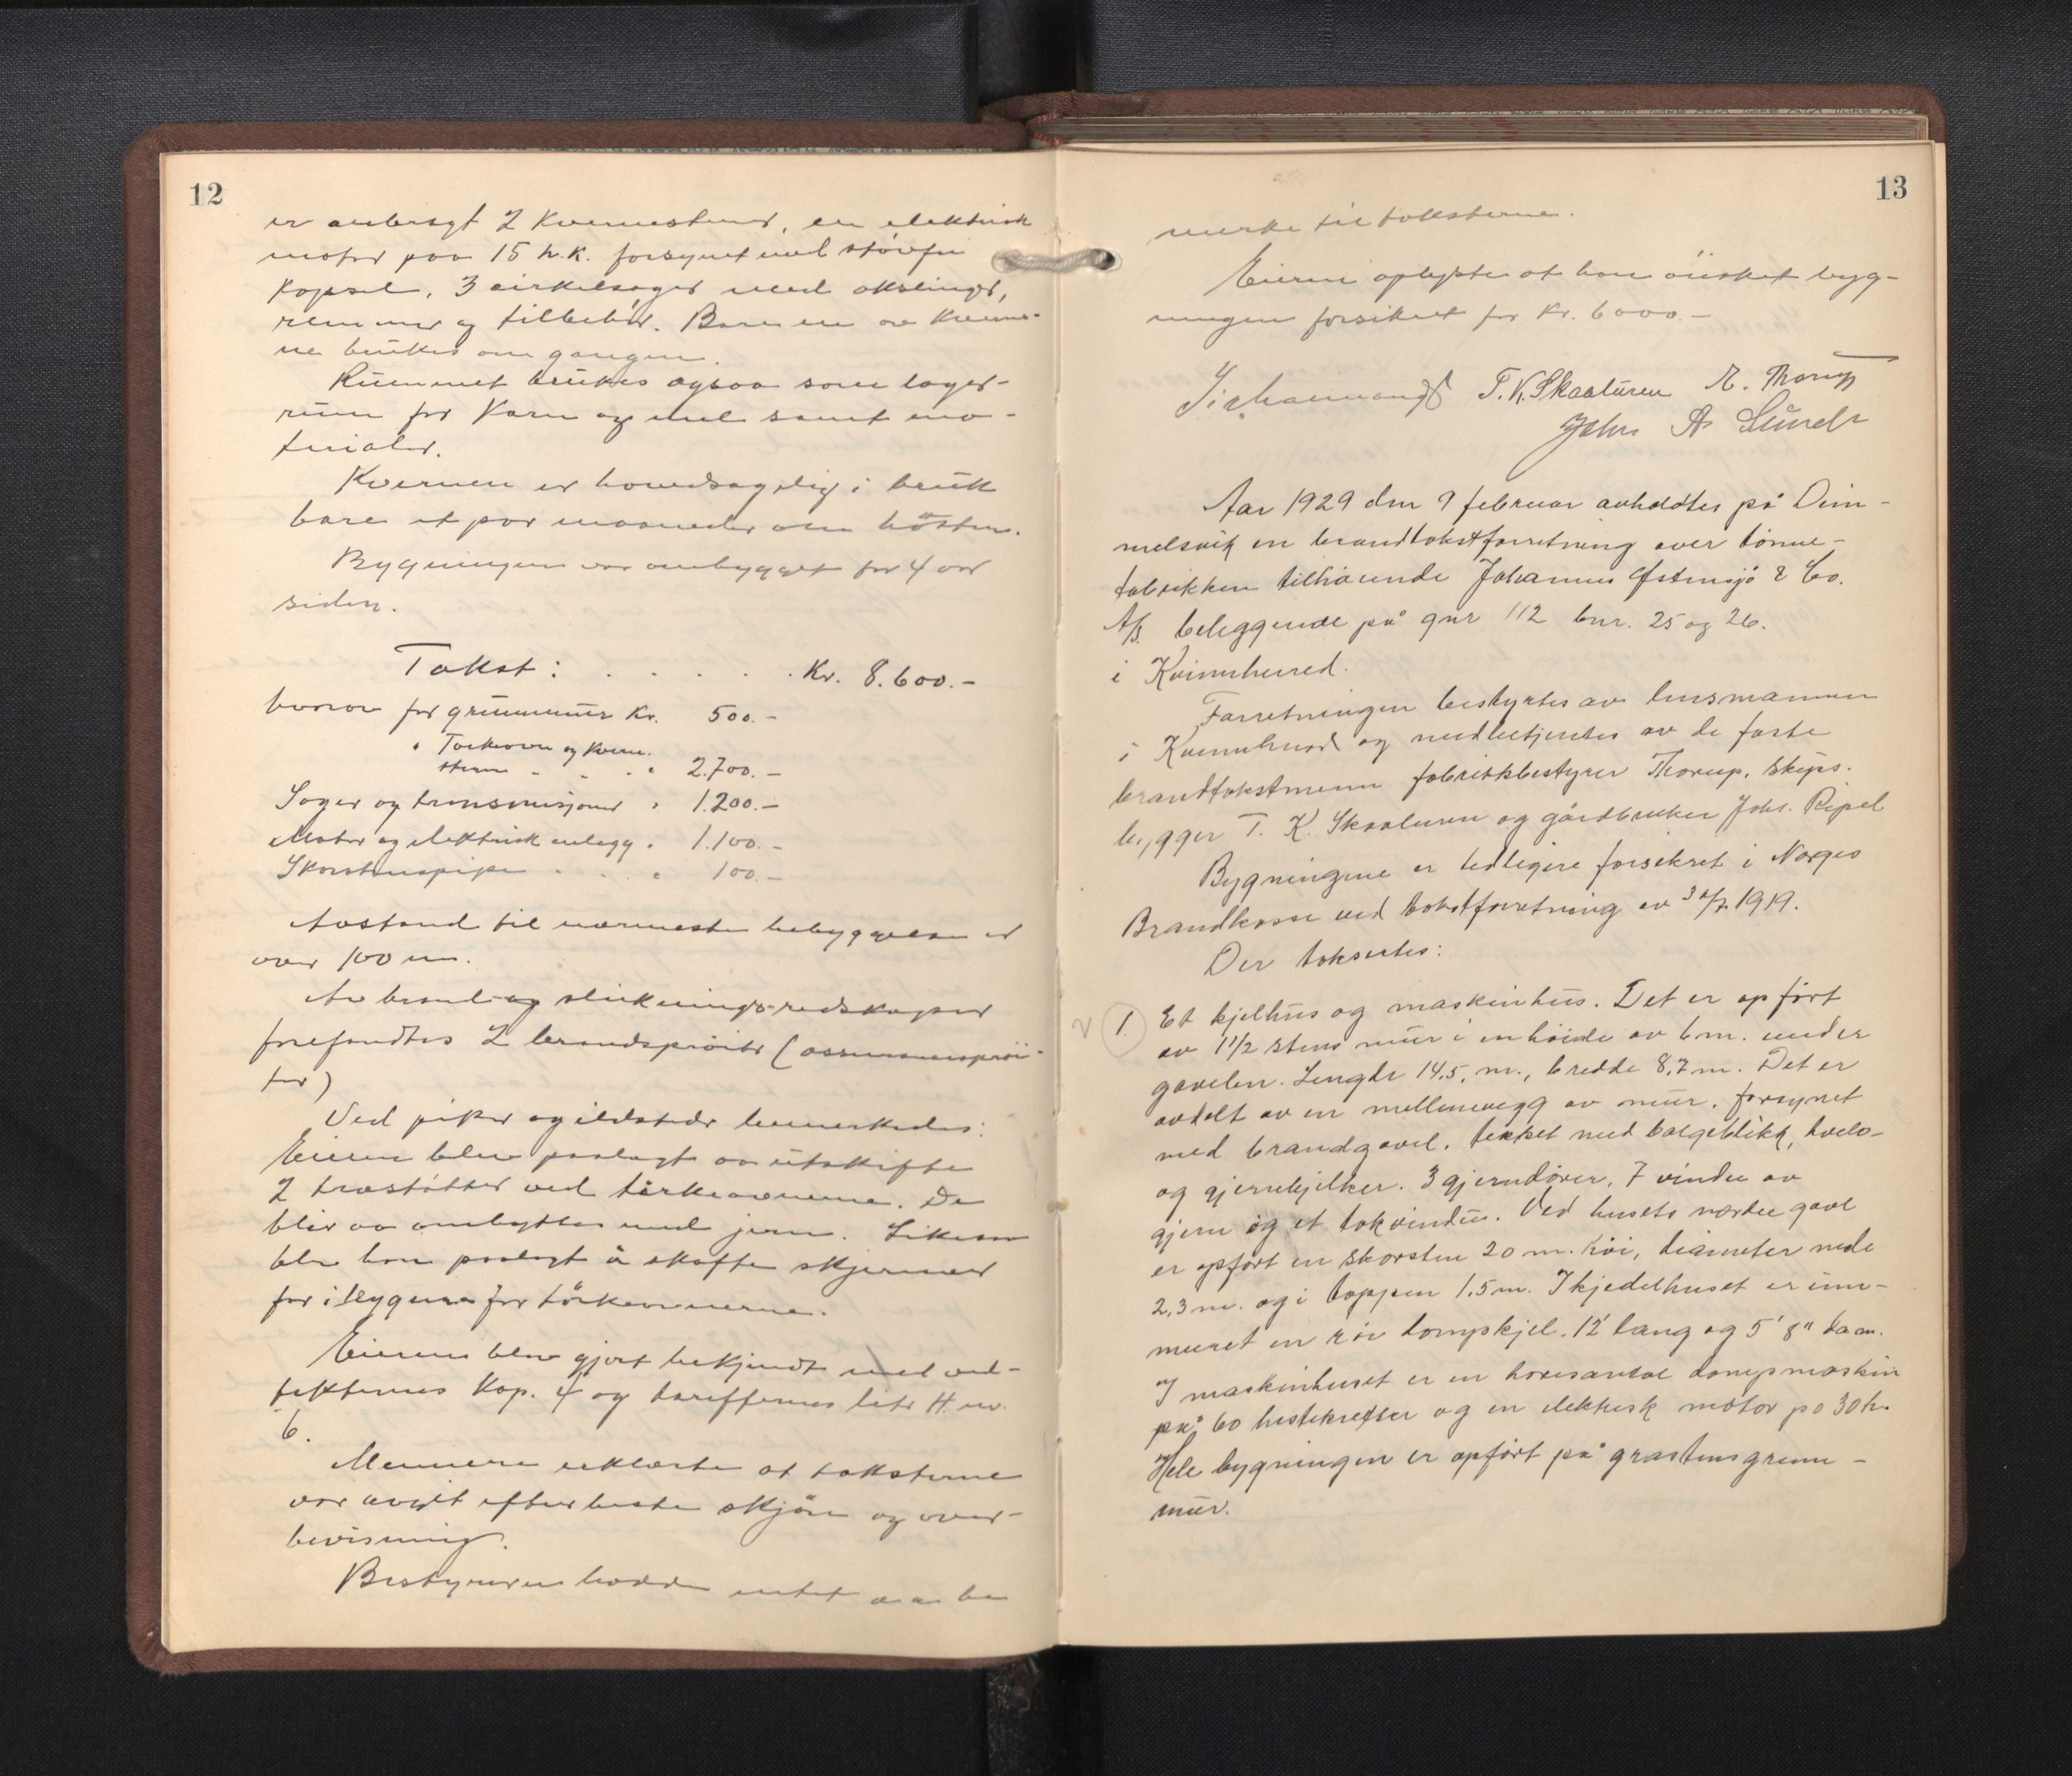 12
er anbragt 2 kvernstener, en elektrisk
motor paa 15 h.k. forsynet med støvfri
kapsel, 3 cirkelsager med akslinger,
remmer og tilbehør. Bare en av kverne-
ne brukes om gangen.
Rummet brukes ogsaa som lager-
rum for korn og mel samt ma-
terialer.
Kvernen er hovedsagelig i bruk
bare et par maaneder om høsten.
Bygningen var ombygget for 4 aar
siden.
Takst: . . . . . Kr. 8.600.-
herav for grunnmur Kr. 500.-
" Tørkeovn og kvern-
stener - . . " 2.700.-
Sager og transmisjoner " 1.200.-
Motor og elektrisk anlegg " 1.100.-
Skorstenspipe . . . " 100.-
Avstand til nærmeste bebyggelse er
over 100 m.
Av brand- og slukningsredskaper
forefandtes 2 brandsprøiter (assuransesprøi-
ter)
Ved piper og ildsteder bemerkedes:
Eieren blev paalagt aa utskifte
2 træstøtter ved tørkeovnene. De
blir aa ombytte med jern. Likesaa
blev han paalagt å skaffe skjermer
for ilegene for tørkeovnerne.
Eieren blev gjort bekjendt med ved-
tekternes Kap. 4 og tariffernes litr H. nr.
6.
Mennene erklærte at taksterne
var avgit efter beste skjøn og over-
bevisning.
Bestyreren hadde intet aa be
13
merke til taksterne.
Eieren oplyste at han ønsket byg-
ningen forsikret for Kr. 6000.-
T. K. Skaaluren M. Thorup
Johs A. Sunde
Aar 1929 den 9 februar avholdtes på Dim-
melsvik en brandtakstforretning over tønne-
fabrikken tilhørende Johannes Østensjø & Co.
A/S. beliggende på gnr 112 bnr. 25 og 26.
i Kvinnherred.
Forretningen bestyrtes av lensmannen
i Kvinnherad og medbetjentes av de faste
brandtakstmenn fabrikkbestyrer Thorup, skips-
bygger T. K. Skaaluren og gårdbruker Johs. Ripel
Bygningene er tidligere forsikret i Norges
Brandkasse ved takstforretning av 30/7 1919.
Der takseres:
2 1. Et kjelhus og maskinhus. Det er opført
av 1 1/2 stens mur i en høide av 6 m. under
gavelen. Lengde 14,5 m., bredde 8,7 m. Det er
avdelt av en mellemvegg av mur, forsynet
med brandgavel, tekket med bølgeblikk, tvelo-
og gjernebjelker. 3 gjerndører, 7 vinduer av
gjern og et takvindu. Ved husets nordre gavl
er opført en skorsten 20 m. høi, diameter nede
2,3 m. og i toppen 1,5 m. I kjedelhuset er inn-
muret en rør dampskjel. 12' lang og 5' 8" diam.
I maskinhuset er en horisontal dampmaskin
på 60 hestekrefter og en elektrisk motor på 30 h.
Hele bygningen er opført på gråstensgrunn-
mur.